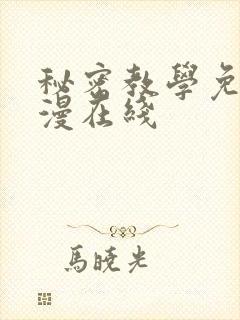 秘密教學免
漫在綫
馬曉光